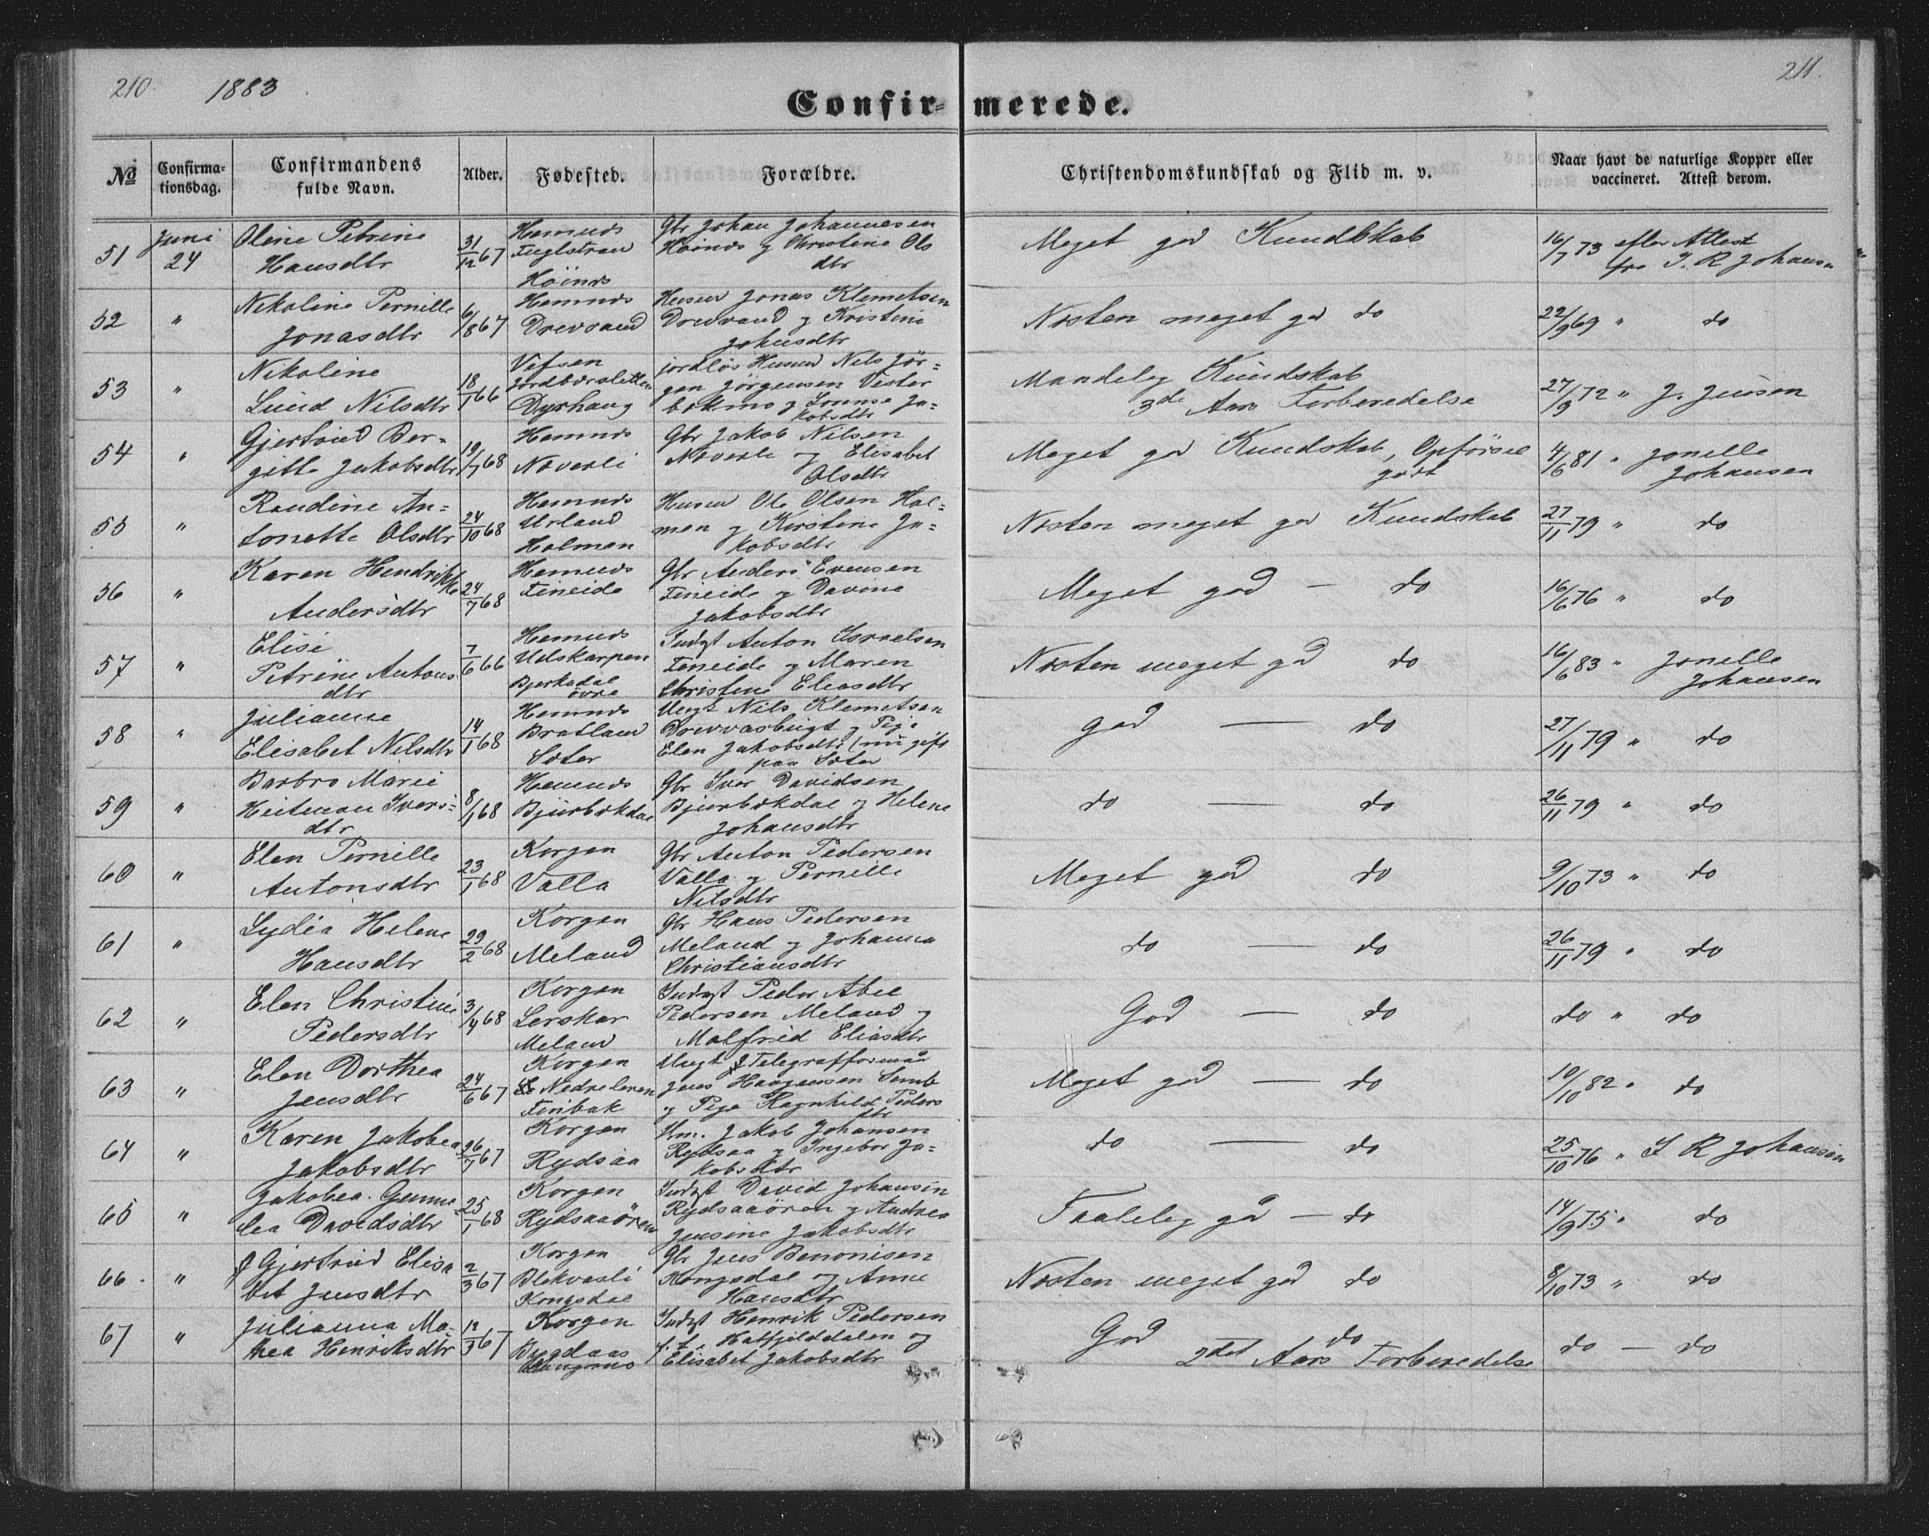 210. 1883 211.
Confirmerede.
№ Confirmationsdag. Confirmandens fulde Navn. Alder. Fødested. Forældre. Christendomskundskab og Flid m. v. Naar havt de naturlige Kopper eller vaccineret. Attest derom.
51 Juni 24 Oline Petrine Hansdtr 31/12 67 Hemnes Fuglstran Höines Gbr Johan Johannesen Höines og Christine Ols dtr Meget god Kundskab 16/7 73 efter Attest fra I. R Johansen
52 " Nikoline Pernille Jonasdtr 6/8 67 Hemnes Drevvand Husm Jonas Klemetsen Drevvand og Kristine Johnsdtr Næsten meget god do 22/9 69 " do
53 " Nikoline Lund Nilsdtr 18/1 66 Vefsen Jordbærsletten Dyrhaug jordløs Husm Nils Jörgen Jörgensen Vesterbækmo og Jakobsdtr Mandelig Kundskab 3de Aars Forberedelse 27/9 72 " J. Jensen
54 " Gjertrud Bergitte Jakobsdtr 19/7 68 Hemnes Næverli Gbr Jakob Nilsen Næverli og Elisabet Olsdtr Meget god Kundskab, Opförsel godt 4/6 81 " Jonelle Johansen
55 " Randine Antonette Olsdtr 24/10 68 Hemnes Urland Holmen Husm Ole Olsen Holmen og Kirstine Jakobsdtr Næsten meget god Kundskab 27/11 79 " do
56 " Karen Hendrikke Andersdtr 24/7 68 Hemnes Fineide Gbr Anders Evensen Fineide og Davine Jakobsdtr Meget god — do 16/6 76 " do
57 " Elise Petrine Antonsdtr 7/6 66 Hemnes Udskarpen Bjerkadal övre Indst Anton Israelsen Fineide og Maren Christine Eliasdtr Næsten meget god do 16/6 83 " Jonelle Johansen
58 " Julianne Elisabet Nilsdtr 14/1 68 Hemnes Bratland Sæter Ungk Nils Klemetsen Drevvasbugt og Pige Elen Jakobsdtr (nu gift paa Sæter god — do 27/11 79 " do
59 " Barbro Marie Heitman Iversdtr 8/1 68 Hemnes Bjurbækdal Gbr Iver Davidsen Bjurbækdal og Helene Johansdtr do — do 26/11 79 " do
60 " Elen Pernille Antonsdtr 23/1 68 Korgen Valla Gbr Anton Pedersen Valla og Pernille Nilsdtr Meget god do 9/10 73 " do
61 " Lydia Helene Hansdtr 29/2 68 Korgen Meland Gbr Hans Pedersen Meland og Johanna Christiansdtr do — do 26/11 79 " do
62 " Elen Christine Pedersdtr 3/4 68 Korgen Lerskar Meland Indst Peder Abel Pedersen Meland og Malfrid Eliasdtr God — do do " do
63 " Elen Dorthea Jensdtr 24/6 67 Korgen Nedreleren Finbak Ungk Telegrafformand Jens Haagensen Semb og Pige Ragnhild Pedersdtr Meget god — do 10/10 82 " do
64 " Karen Jakobea Jakobsdtr 26/7 67 Korgen Rydsaa Hm. Jakob Johansen Rydsaa og Ingebor Jakobsdtr do — do 25/10 76 " I R Johansen
65 " Jakobea Gunnelea Davidsdtr 25/1 68 Korgen Rydsaaören Indst David Johansen Rydsaaören og Andrea Jensine Jakobsdtr Taalelig god — do 14/9 75 " do
66 " Gjertrud Elisabet Jensdtr 2/3 67 Korgen Blekvasli Kongsdal Gbr Jens Benonisen Kongsdal og Anne Hansdtr Næsten meget god do 8/10 73 " do
67 " Julianna Mathea Henriksdtr 12/3 67 Korgen Bygdaas Indst Henrik Pedersen f. t. Hatfjelddalen og Elisabet Jakobsdtr God do 2det Aars Forberedelse do — do